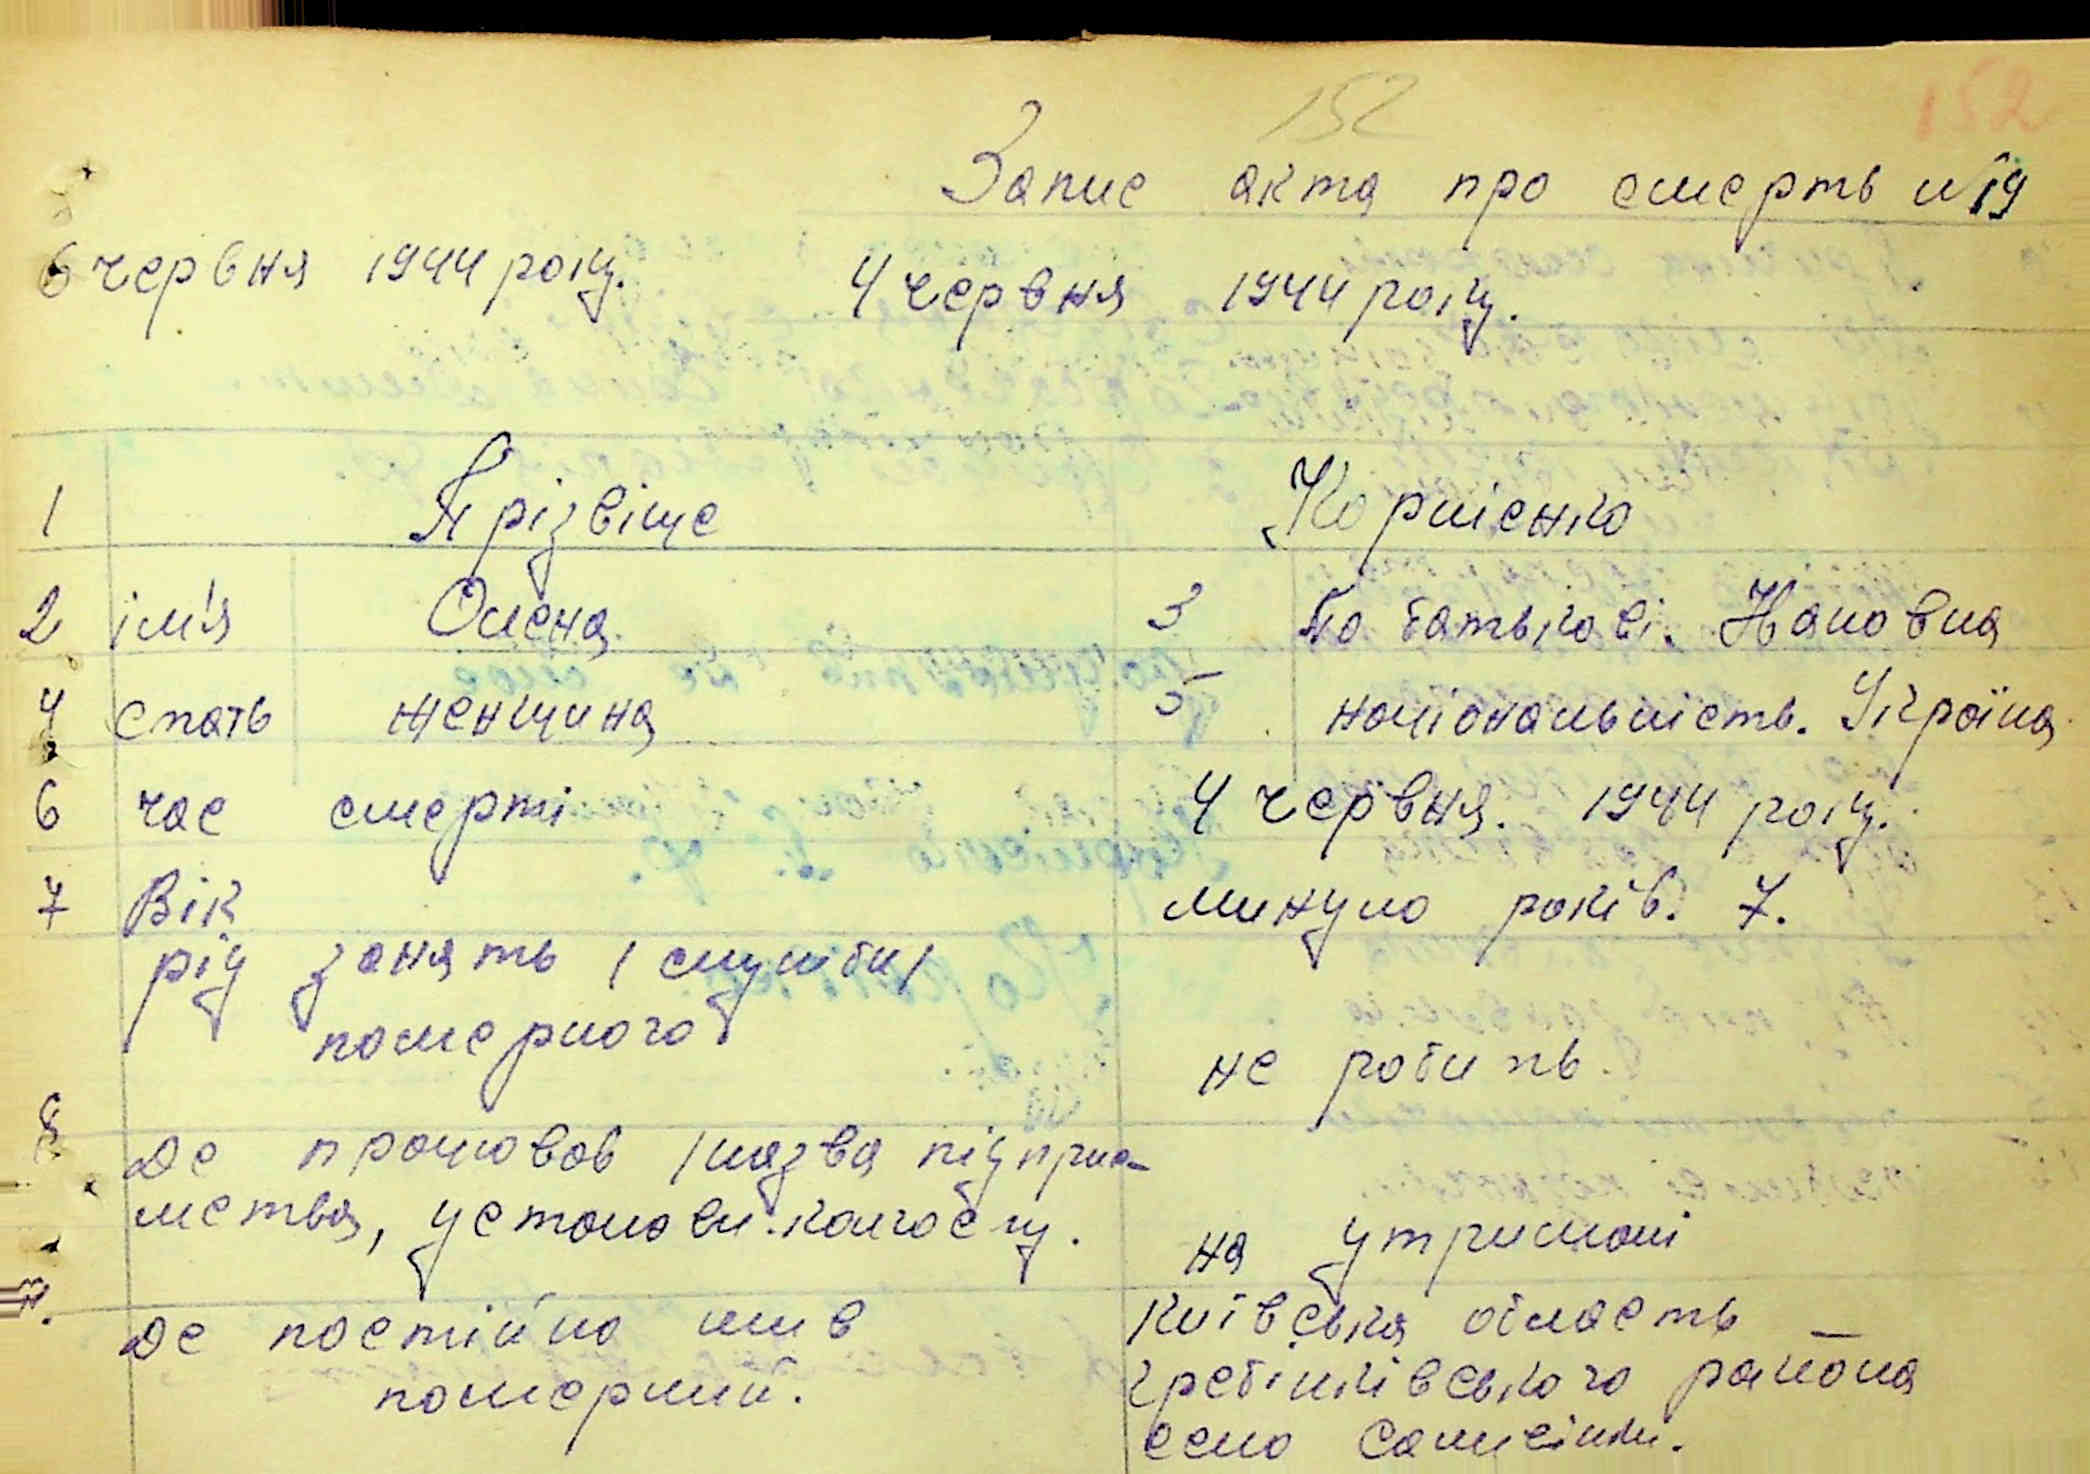 152 152
Запис акта про смерть N 19
6 червня 1944 року. 4 червня 1944 року.
1 Прізвіще Корнієнко
2 ім'я Олена 3 По батькові.
4 стать женщина 5 національність. Україна
6 час смерті 4 червня. 1944 року.
7 Вік минуло років. 7.
рід занять /служби/
померлого не робить.
8 Де працював /назва підприє-
мства, установи. колгоспу. на утримані
Де постійно жив Київська область
померлий. гребінківського района
село Саливінки.